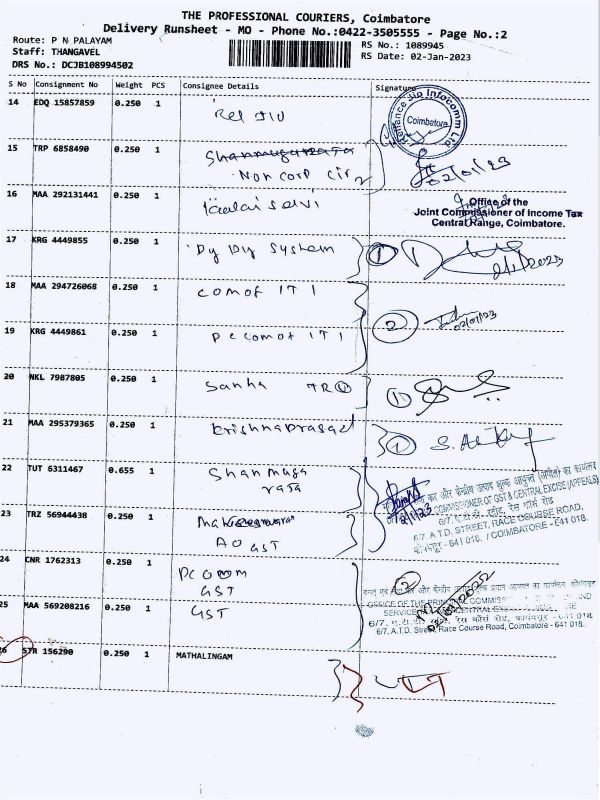 THE PROFESSIONAL COURIERS, Coimbatore
Delivery Runsheet - MO - Phone No.:0422-3505555 - Page No.:2
Route: P N PALAYAM
RS No.: 1089945
Staff: THANGAVEL
RS Date: 02-Jan-2023
DRS No.: DCJB108994502
S No Consignment No Weight PCS Consignee Details Signature
14 EDQ 15857859 0.250 1 Rel JIO
Reliance Jio Infocomm Ltd
Coimbatore
15 TRP 6858490 0.250 1
Non corp cir 2
02/01/23
16 MAA 292131441 0.250 1
Office of the
Joint Commissioner of Income Tax
Central Range, Coimbatore.
17 KRG 4449855 0.250 1 Dy Dy System 1
2/1/2023
18 MAA 294726068 0.250 1 com of IT 1
2 02/01/23
19 KRG 4449861 0.250 1 Pc com of IT 1
20 NKL 7987805 0.250 1 Sanha TRO 1
21 MAA 295379365 0.250 1 Krishnaprasad 1
22 TUT 6311467 0.655 1 Shanmuga
raja
कर और केंद्रीय उत्पाद शुल्क आयुक्त (अपील) का कार्यालय
COMMISSIONER OF GST & CENTRAL EXCISE (APPEALS)
6/7, ए.टी.डी. स्ट्रीट, रेस कोर्स रोड
6/7. A.T.D. STREET, RACE COURSE ROAD,
कोयम्बटूर - 641 018. / COIMBATORE - 641 018.
23 TRZ 56944438 0.250 1
AO GST
24 CNR 1762313 0.250 1 Pc comm
GST
2
25 MAA 569208216 0.250 1 GST
OFFICE OF THE PRINCIPAL COMMISS AND
SERVICE CENTRAL
6/7, ए.टी.डी. रेस कोर्स रोड, कोयम्बटूर - 641 018.
6/7, A.T.D. Street, Race Course Road, Coimbatore - 641 018.
26 STR 156290 0.250 1 MATHALINGAM